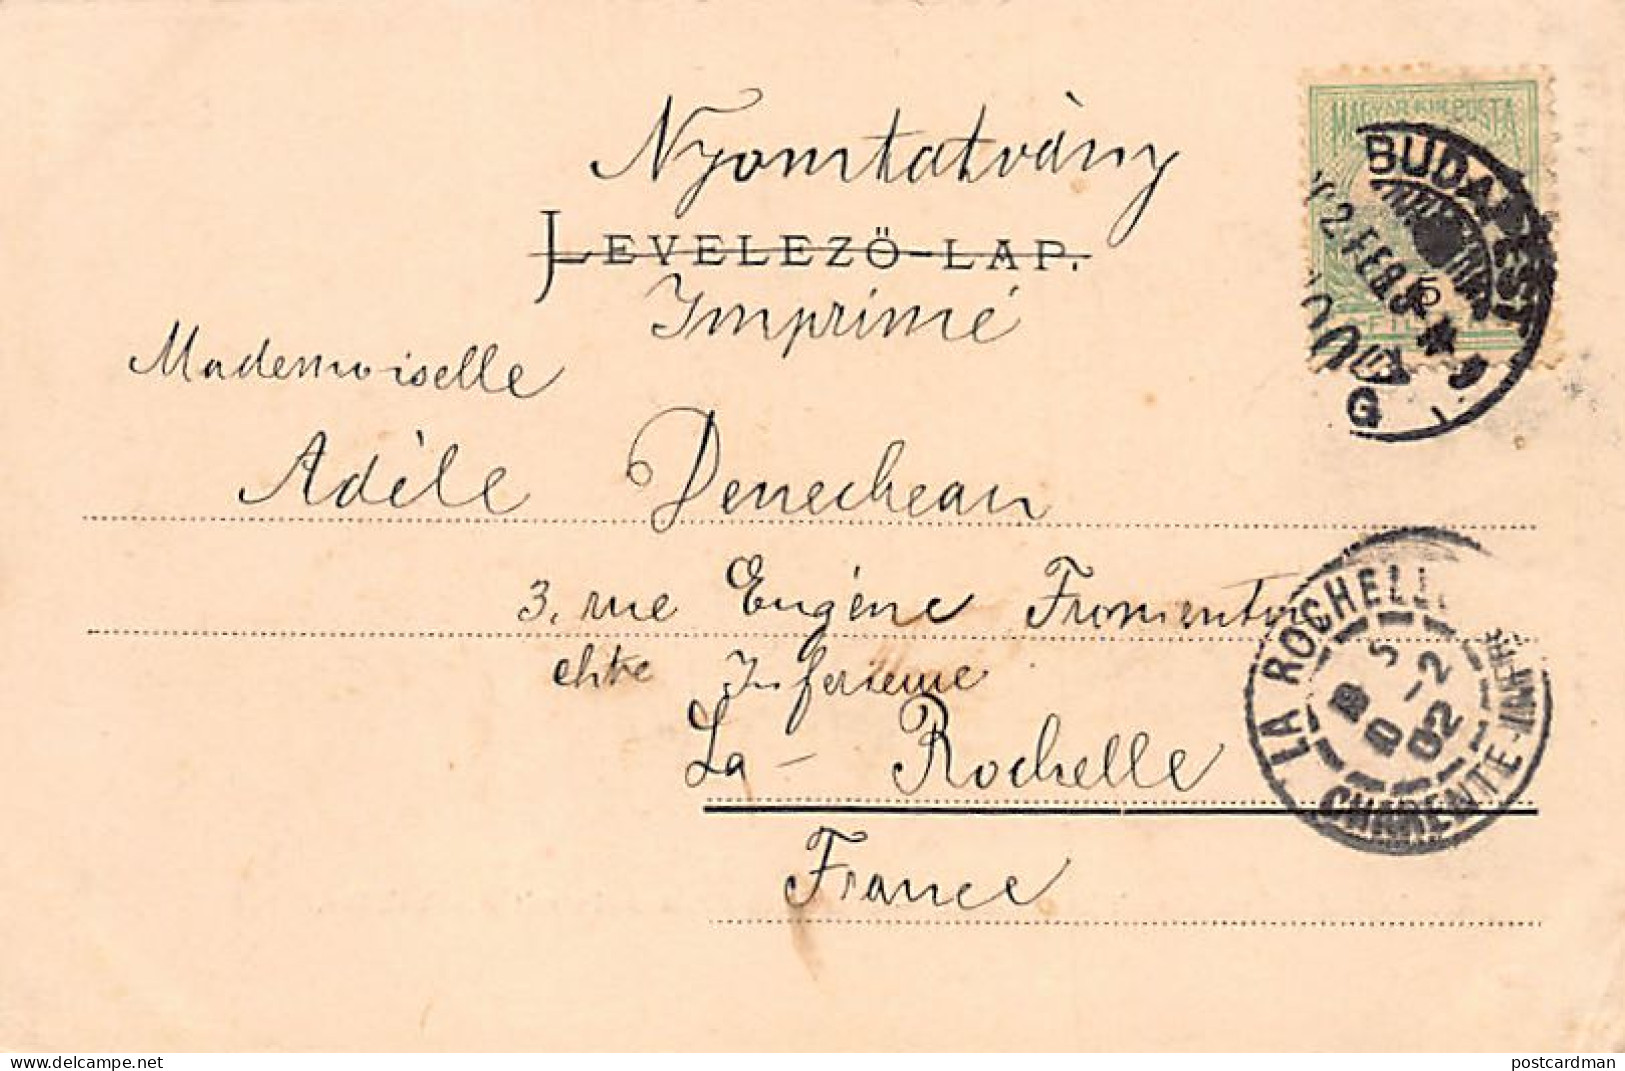 Nyomtatvány
LEVELEZŐ-LAP.
Imprimé
Mademoiselle
Adèle Denecheau
3, rue Eugéne Fromentin
chte Inferieure
La - Rochelle
France
MAGYAR KIR. POSTA
BUDAPEST
5
G
LA ROCHELLE
5
-2
02
CHARENTE-INFRE
delcampe.net
postcardman